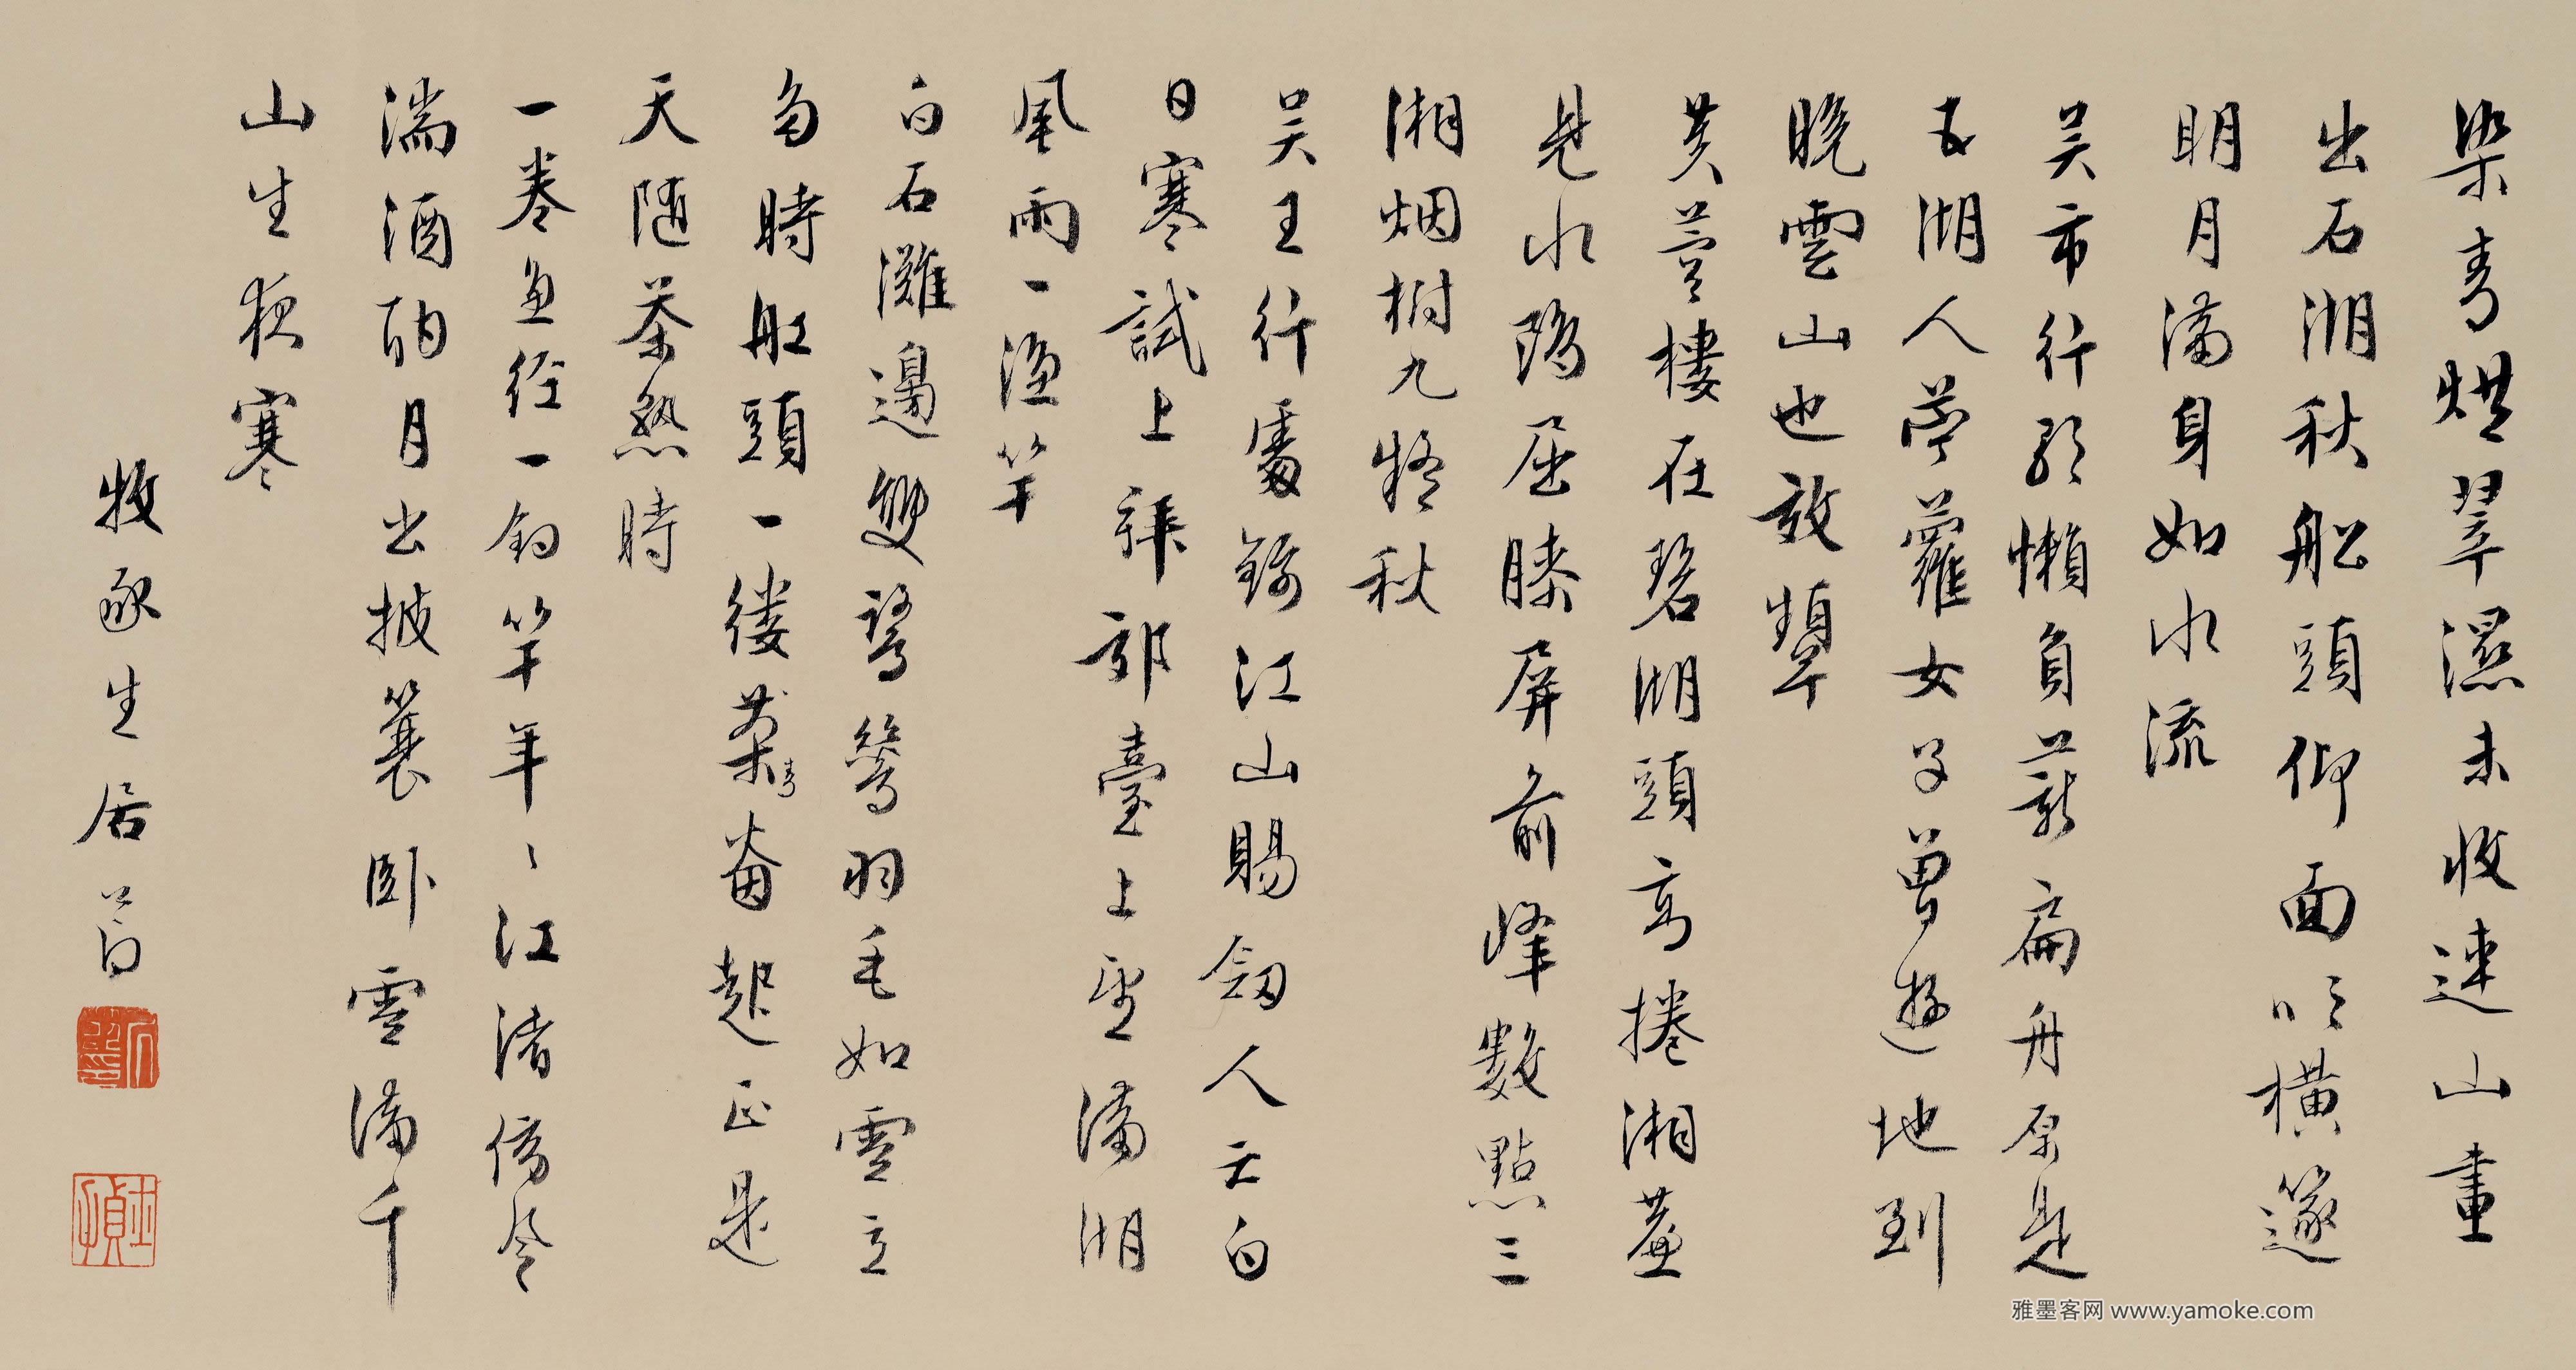 染青烘翠濕未收連山畫
出石湖秋船頭仰面吹橫篴
明月滿身如水流
吴市行歌懶負薪扁舟原是
五湖人苧蘿女子曾遊地到
晚雲山也效顰
芙樓在碧湖頭高捲湘簾
見水鷗屈膝屏前峰數點三
湘烟樹九疑秋
吴王行處錦江山賜劒人亡白
日寒試上拜郊臺上望滿湖
風雨一漁竿
白石灘邊雙鷺鷥羽毛如雪立
多時船頭一縷茶青烟起正是
天随茶熟時
一卷魚經一釣竿年〻江渚傍冷
湍酒酣月出披蓑卧雪滿千
山生夜寒
牧豕生居節
雅墨客网 www.yamoke.com